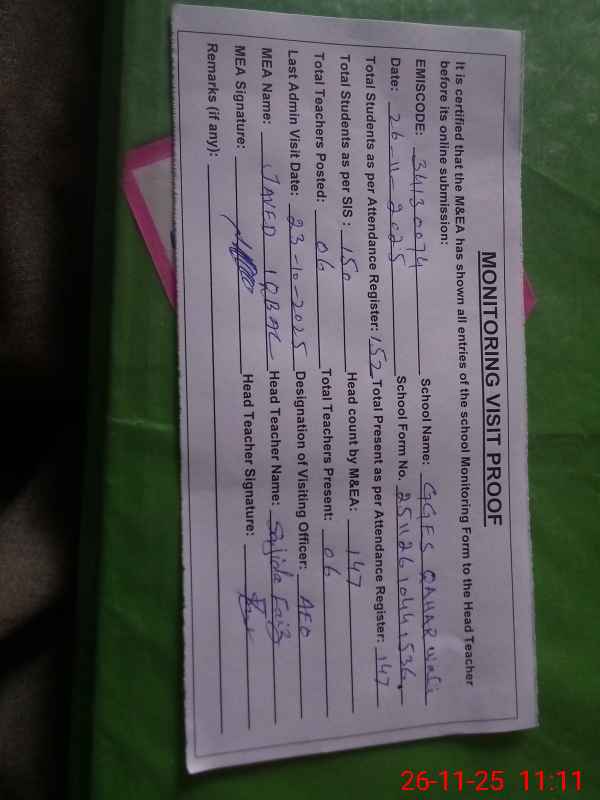 MONITORING VISIT PROOF
It is certified that the M&EA has shown all entries of the school Monitoring Form to the Head Teacher
before its online submission:
EMISCODE: 34130074 School Name: GGES QAHAR Wali
Date: 26-11-2025 School Form No. 25112610441536
Total Students as per Attendance Register: 152 Total Present as per Attendance Register: 147
Total Students as per SIS : 150 Head count by M&EA: 147
Total Teachers Posted: 06 Total Teachers Present: 06
Last Admin Visit Date: 23-10-2025 Designation of Visiting Officer: AEO
MEA Name: JAVED IQBAL Head Teacher Name: Sajida Faiz
MEA Signature: Head Teacher Signature:
Remarks (if any):
26-11-25 11:11